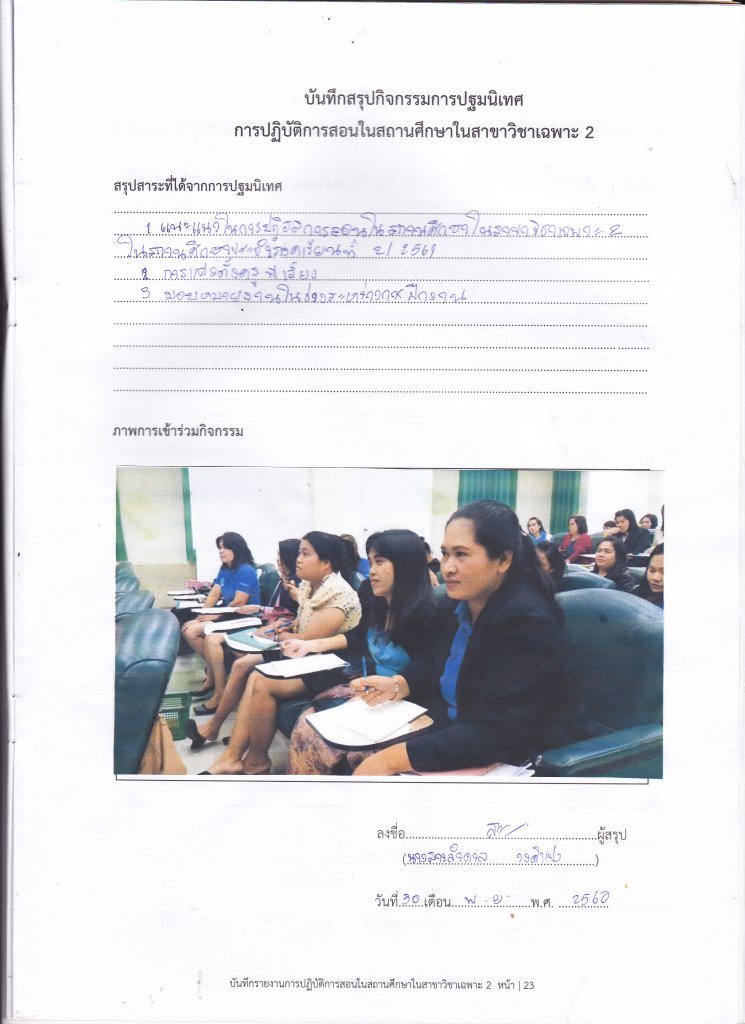 บันทึกสรุปกิจกรรมการปฐมนิเทศ
การปฏิบัติการสอนในสถานศึกษาในสาขาวิชาเฉพาะ 2
สรุปสาระที่ได้จากการปฐมนิเทศ
1 แนะแนวในการปฏิบัติการสอนในสถานศึกษาในสาขาวิชาเฉพาะ 2
ในสถานศึกษาประจำภาคเรียนที่ 2/2561
2 การแต่งตั้งครูพี่เลี้ยง
3 มอบหมายงานในช่วงระหว่างการฝึกงาน
ภาพการเข้าร่วมกิจกรรม
ลงชื่อ ผู้สรุป
(นางสาวลำดวล )
วันที่ 30 เดือน พ.ย. พ.ศ. 2560
บันทึกรายงานการปฏิบัติการสอนในสถานศึกษาในสาขาวิชาเฉพาะ 2 หน้า | 23